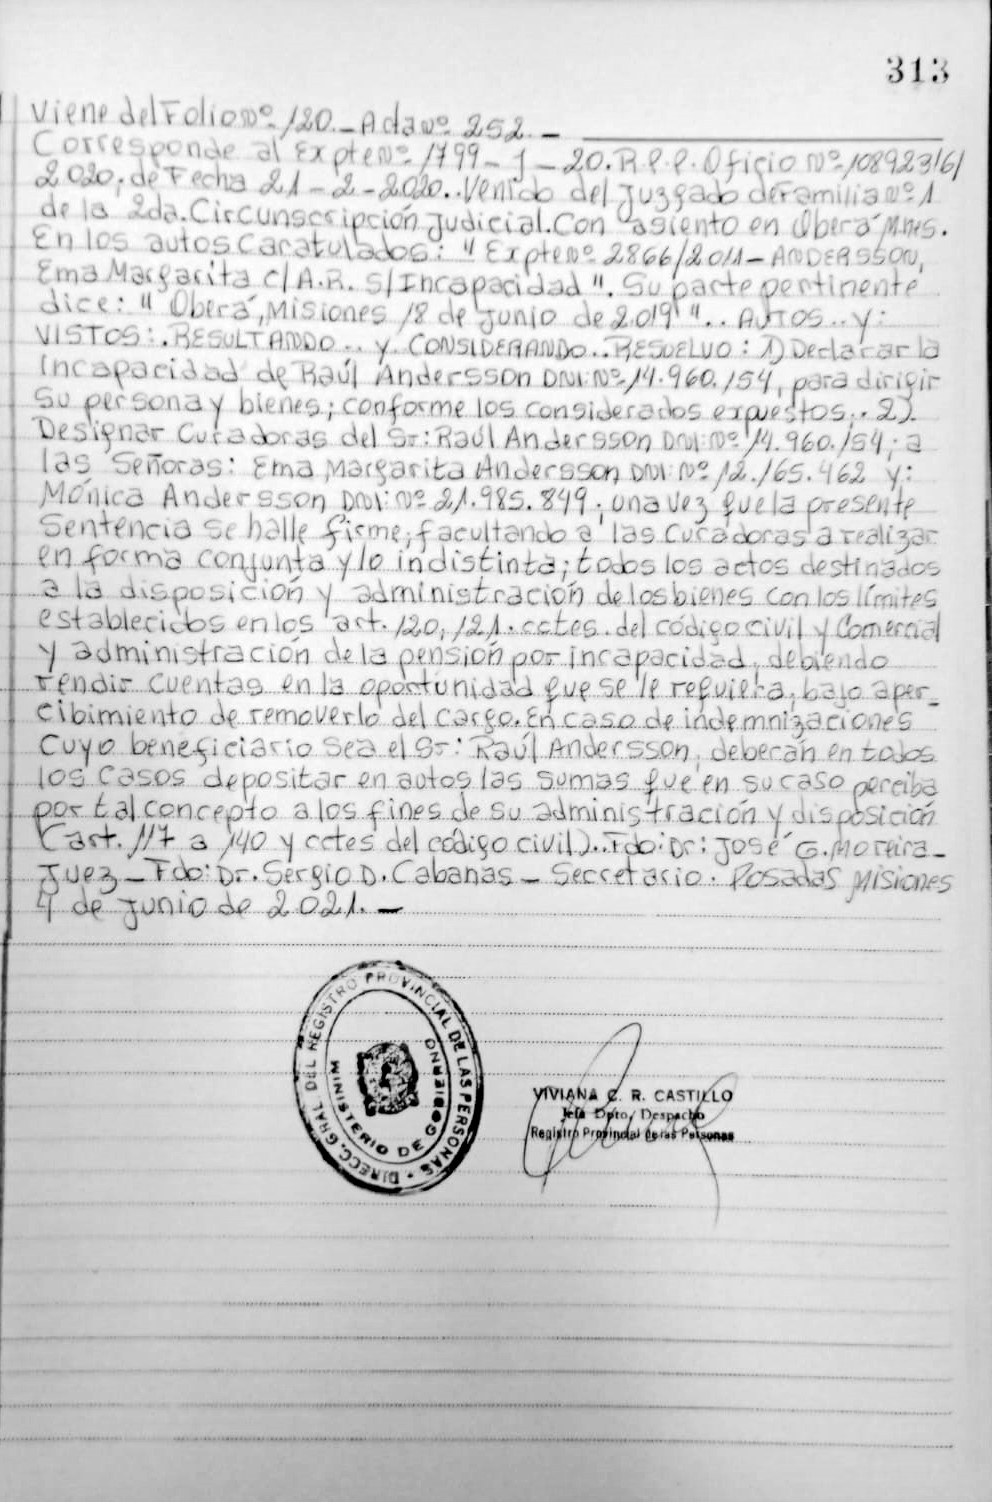 313
Viene del Folio Nº 120._ Acta Nº 252._
Corresponde al Expte Nº 1799-J-20. R.P.P. Oficio Nº 108923161
2020, de Fecha 21-2-2020.. Venido del Juzgado de Familia Nº 1
de la 2da. Circunscripción Judicial. Con asiento en Oberá Mnes.
En los autos Caratulados: "Expte Nº 2866/2011- ANDERSSON,
Ema Margarita c/ A.R. S/Incapacidad". Su parte pertinente
dice: "Oberá, Misiones 18 de Junio de 2019"..AUTOS..y:
VISTOS:.RESULTANDO..y CONSIDERANDO..RESUELVO: 1) Declarar la
Incapacidad de Raúl Andersson DNI: Nº 14.960.154, para dirigir
Su persona y bienes; conforme los considerados expuestos;. 2).
Designar Curadoras del Sr: Raúl Andersson DNI: Nº 14.960.154; a
las Señoras: Ema Margarita Andersson DNI: Nº 12.165.462 y:
Mónica Andersson DNI: Nº 21.985.849; una vez que la presente
Sentencia Se halle firme; facultando a las Curadoras a realizar
en forma conjunta y/o indistinta; todos los actos destinados
a la disposición y administración de los bienes con los límites
establecidos en los art. 120, 121. cctes. del código civil y Comercial
y administración de la pensión por incapacidad, debiendo
rendir cuentas en la oportunidad que se le requiera, bajo aper_
cibimiento de removerlo del cargo. En caso de indemnizaciones
Cuyo beneficiario Sea el Sr: Raúl Andersson, deberán en todos
los Casos depositar en autos las sumas que en su caso perciba
por tal concepto a los fines de su administración y disposición
(art. 117 a 140 y cctes del código civil)..Fdo: Dr: José G. Moreira_
Juez_ Fdo: Dr. Sergio D. Cabanas_ Secretario. Posadas Misiones
4 de Junio de 2021._
DIRECC. GRAL. DEL REGISTRO PROVINCIAL DE LAS PERSONAS
MINISTERIO DE GOBIERNO
VIVIANA C. R. CASTILLO
Jefa Dpto. Despacho
Registro Provincial de las Personas